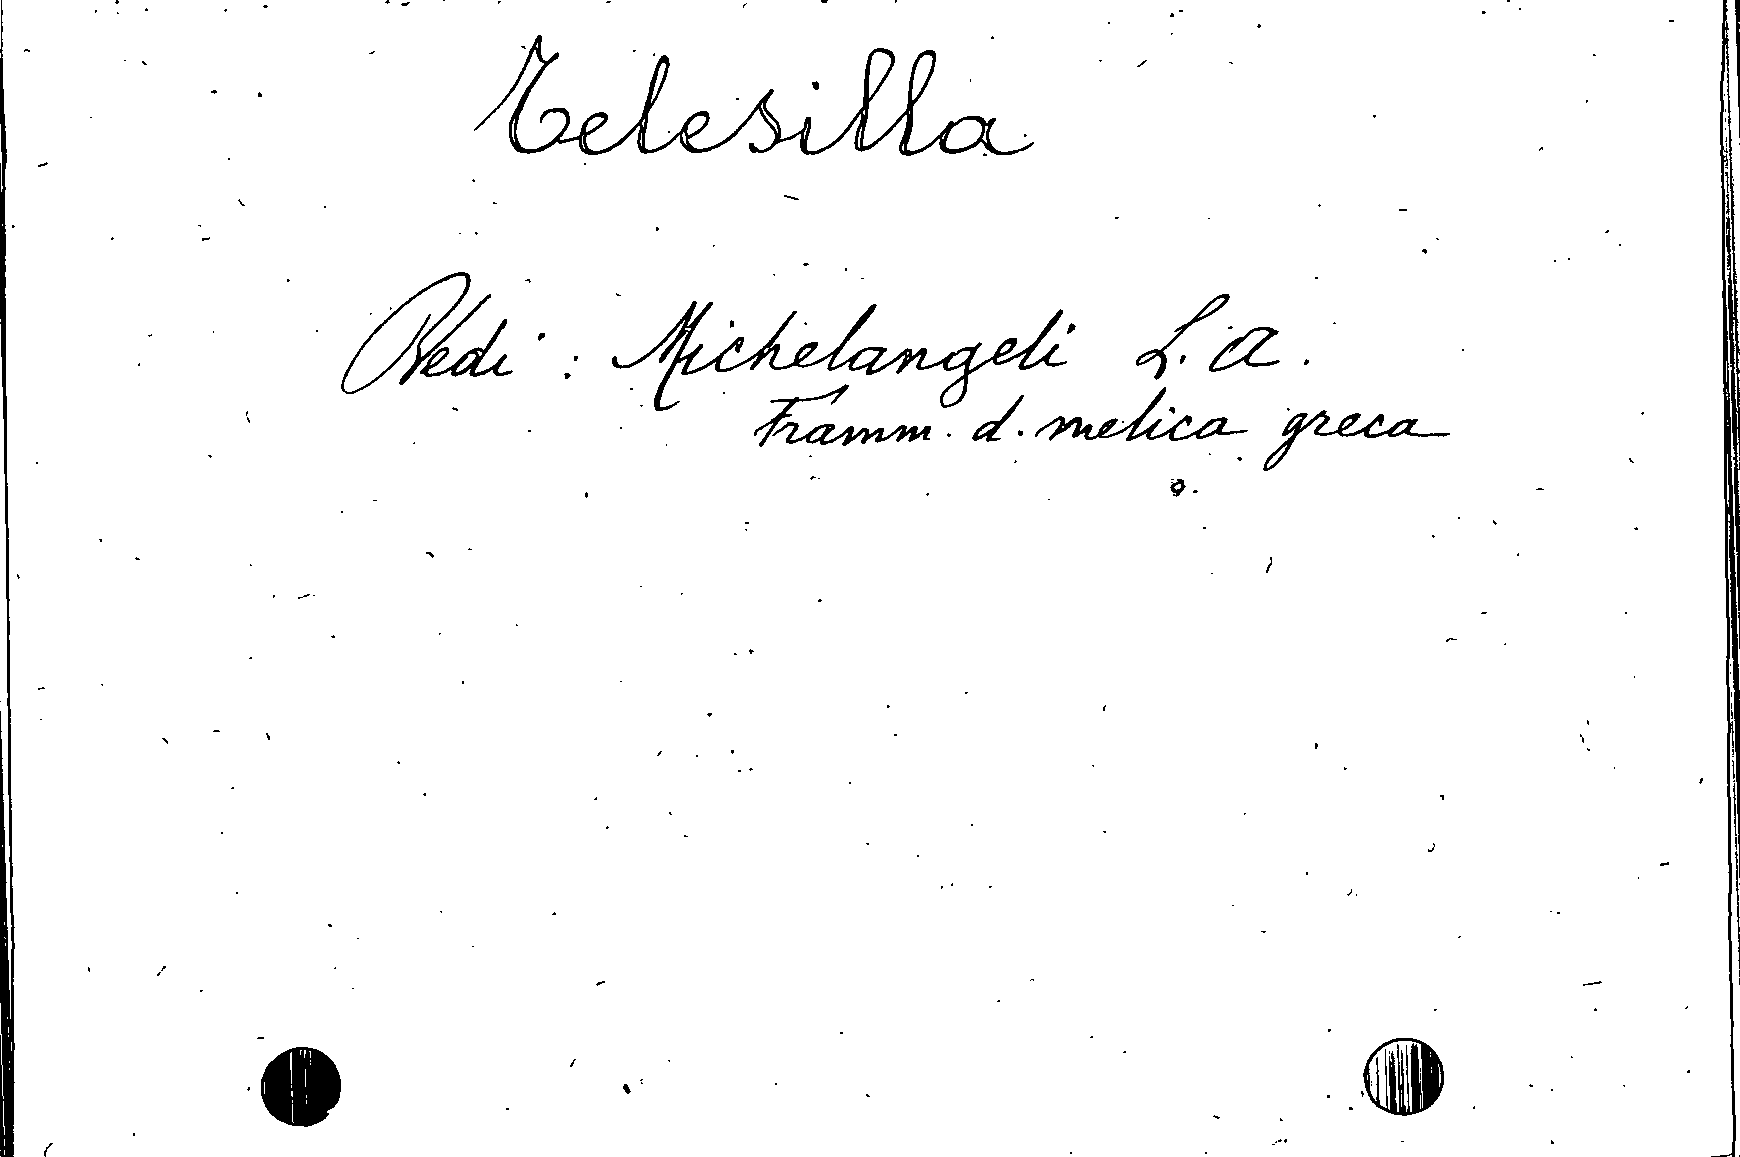 Telesilla
Vedi : Michelangeli L. A.
Framm. d. melica greca